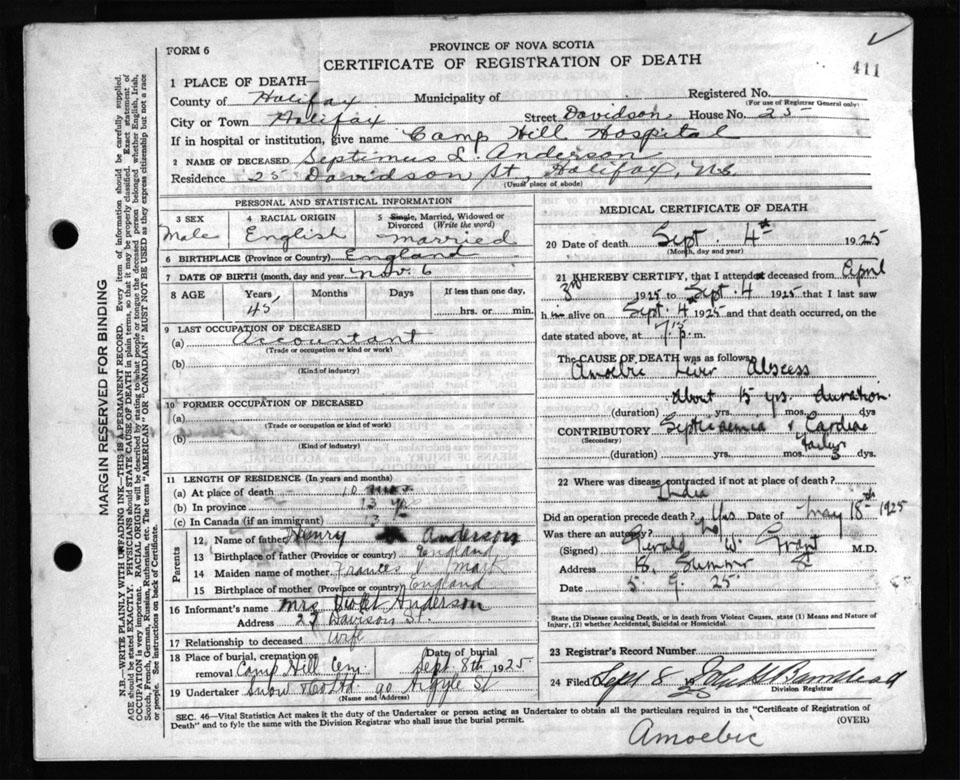 411
FORM 6
PROVINCE OF NOVA SCOTIA
CERTIFICATE OF REGISTRATION OF DEATH
1 PLACE OF DEATH—
Registered No.
(For use of Registrar General only)
County of Halifax Municipality of
City or Town Halifax Street Davidson House No. 25
If in hospital or institution, give name Camp Hill Hospital
2 NAME OF DECEASED Septimus L. Anderson
Residence 25 Davidson St, Halifax, N.S.
(Usual place of abode)
PERSONAL AND STATISTICAL INFORMATION
3 SEX 4 RACIAL ORIGIN 5 Single, Married, Widowed or Divorced (Write the word)
Male English married
6 BIRTHPLACE (Province or Country) England
7 DATE OF BIRTH (month, day and year) Nov. 6
8 AGE Years Months Days If less than one day,
45 hrs. or min.
9 LAST OCCUPATION OF DECEASED
(a) Accountant
(Trade or occupation or kind or work)
(b)
(Kind of industry)
10 FORMER OCCUPATION OF DECEASED
(a)
(Trade or occupation or kind or work)
(b)
(Kind of industry)
11 LENGTH OF RESIDENCE (In years and months)
(a) At place of death 10
(b) In province 13 yrs
(c) In Canada (if an immigrant) 13
Parents
12 Name of father Henry Anderson
13 Birthplace of father (Province or country) England
14 Maiden name of mother Frances
15 Birthplace of mother (Province or country) England
16 Informant's name Mrs Violet Anderson
Address 25 Davison St.
17 Relationship to deceased wife
18 Place of burial, cremation or removal Camp Hill Cem. Date of burial Sept. 8th 1925
19 Undertaker Snow & Co Ltd 90 Argyle St
(Name and Address)
MEDICAL CERTIFICATE OF DEATH
20 Date of death Sept. 4th 1925
(Month, day and year)
21 I HEREBY CERTIFY, that I attended deceased from April
3rd 1925 to Sept. 4 1925 that I last saw
him alive on Sept. 4 1925 and that death occurred, on
date stated above, at 7 15 p.m.
The CAUSE OF DEATH was as follows:
Amoebic Liver Abscess
about 15 yrs. duration
(duration) yrs. mos. dys
CONTRIBUTORY Septicaemia & Cardiac
(Secondary)
(duration) yrs. mos. 3 dys.
22 Where was disease contracted if not at place of death?
India
Did an operation precede death? Yes Date of May 18th 1925
Was there an autopsy? No
(Signed) Gerald W. Grant M.D.
Address Summer St
Date 5. 9. 25
State the Disease causing Death, or in death from Violent Causes, state (1) Means and Nature of
Injury, (2) whether Accidental, Suicidal or Homicidal.
23 Registrar's Record Number
24 Filed Sept 8 1925 John H Barnstead
Division Registrar
SEC. 46—Vital Statistics Act makes it the duty of the Undertaker or person acting as Undertaker to obtain all the particulars required in the "Certificate of Registration of
Death" and to fyle the same with the Division Registrar who shall issue the burial permit.
(OVER)
Amoebic
MARGIN RESERVED FOR BINDING
N.B.—WRITE PLAINLY WITH UNFADING INK—THIS IS A PERMANENT RECORD. Every item of information should be carefully supplied.
AGE should be stated EXACTLY. PHYSICIANS should STATE CAUSE OF DEATH in plain terms, so that it may be properly classified. Exact statement of
OCCUPATION is very important. RACIAL ORIGIN will be described by stating to what people or tongue the deceased person belonged whether English, Irish,
Scotch, French, German, Russian, Ruthenian, etc. The terms "AMERICAN" or "CANADIAN" MUST NOT BE USED as they express citizenship but not a race
or people. See instructions on back of Certificate.